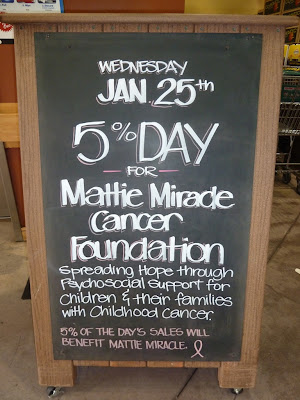 WEDNESDAY
JAN. 25th
5% DAY
FOR
Mattie Miracle
Cancer
Foundation
Spreading Hope through
Psychosocial Support for
Children & their families
with Childhood Cancer.
5% OF THE DAY'S SALES WILL
BENEFIT MATTIE MIRACLE.